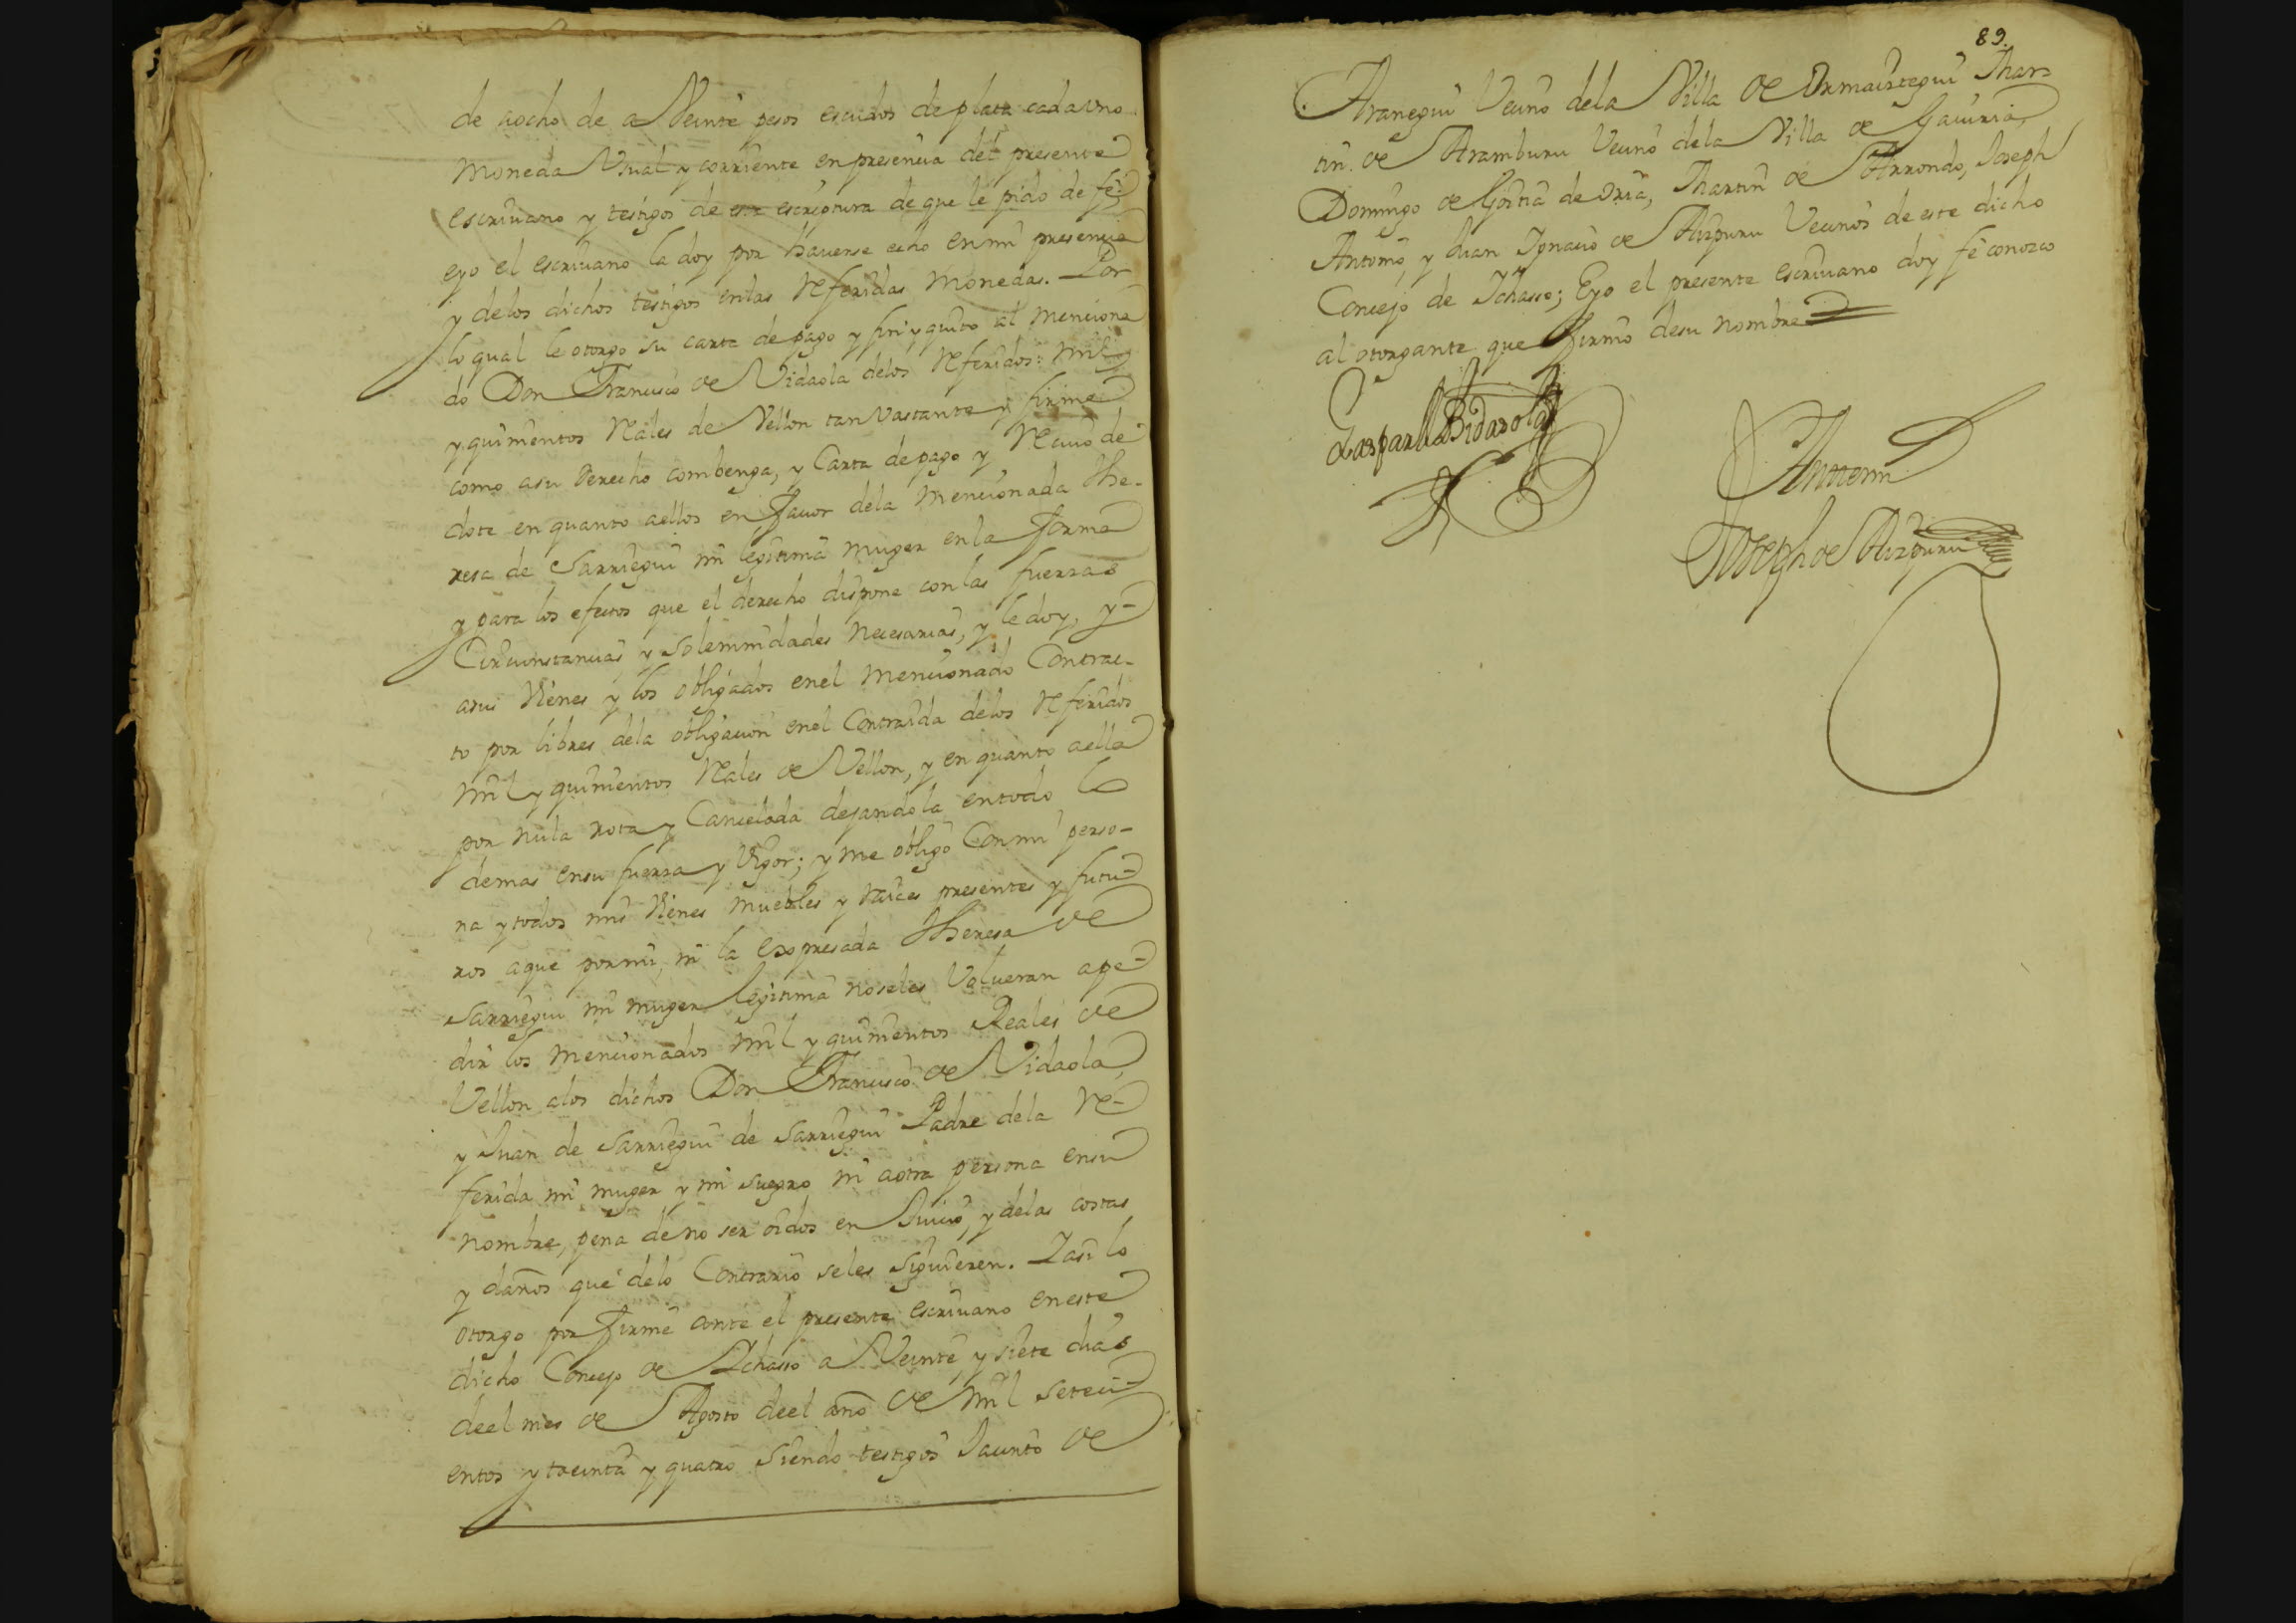 de aocho de a Veinte pesos escudos de plata cada vno
moneda Vsual y corriente en presencia del presente
escriuano y testigos de esta escriptura de que le pido de fe,
eyo el escriuano la doy por hauerse echo en mi presencia
y delos dichos testigos enlas Referidas monedas. Por
lo qual le otorgo su carta de pago y finiyquito al menciona
do Don Francisco de Vidaola delos Referidos: mil
y quinientos Reales de Vellon tan Vastante y firme
como asu derecho combenga, y Carta de pago y Reciuo de
dote en quanto aellos en fauor dela mencionada The-
resa de Sarriegui mi legitima muger enla forma
y para los efectos que el derecho dispone con las fuerzas
Circunstancias y solemnidades necesarias, y le doy, y-
asus Vienes y los obligados enel mencionado Contrac-
to por libres dela obligacion enel Contraida delos Referidos
mil y quinientos Reales de Vellon, y en quanto aella
por nula rota y Cancelada dejandola entodo lo
demas ensu fuerza y Vigor; y me obligo Con mi perso-
na y todos mis Vienes muebles y raices presentes y futu-
ros aque pormi, ni la expresada Theresa de
Sarriegui mi muger legitima noseles Volueran ape-
dir los mencionados mil y quinientos Reales de
Vellon alos dichos Don Francisco de Vidaola,
y Juan de Sarriegui de Sarriegui Padre dela Re-
ferida mi muger y mi suegro ni aotra persona ensu
nombre, pena de no ser oidos en Juicio, y delas costas
y daños que delo Contrario seles siguieren. Yasi lo
otorgo por firme ante el presente escriuano eneste
dicho Concejo de Ichasso a Veinte y siete dias
deel mes de Agosto deel año de mil seteci-
entos y treinta y quatro siendo testigos Jacinto de
89.
Aranegui Vecino dela Villa de Ormaiztegui Mar-
tin de Aramburu Vecino dela Villa de Gauiria,
Domingo de Goitia de Oria, Martin de Arrondo, Joseph
Antonio, y Juan Ignacio de Aizpuru Vecinos de este dicho
Concejo de Ichasso; Eyo el presente escriuano doy fe conozco
al otorgante que firmo desu nombre
Gaspar de Bidaola
Antemi
Joseph de Aizpuru